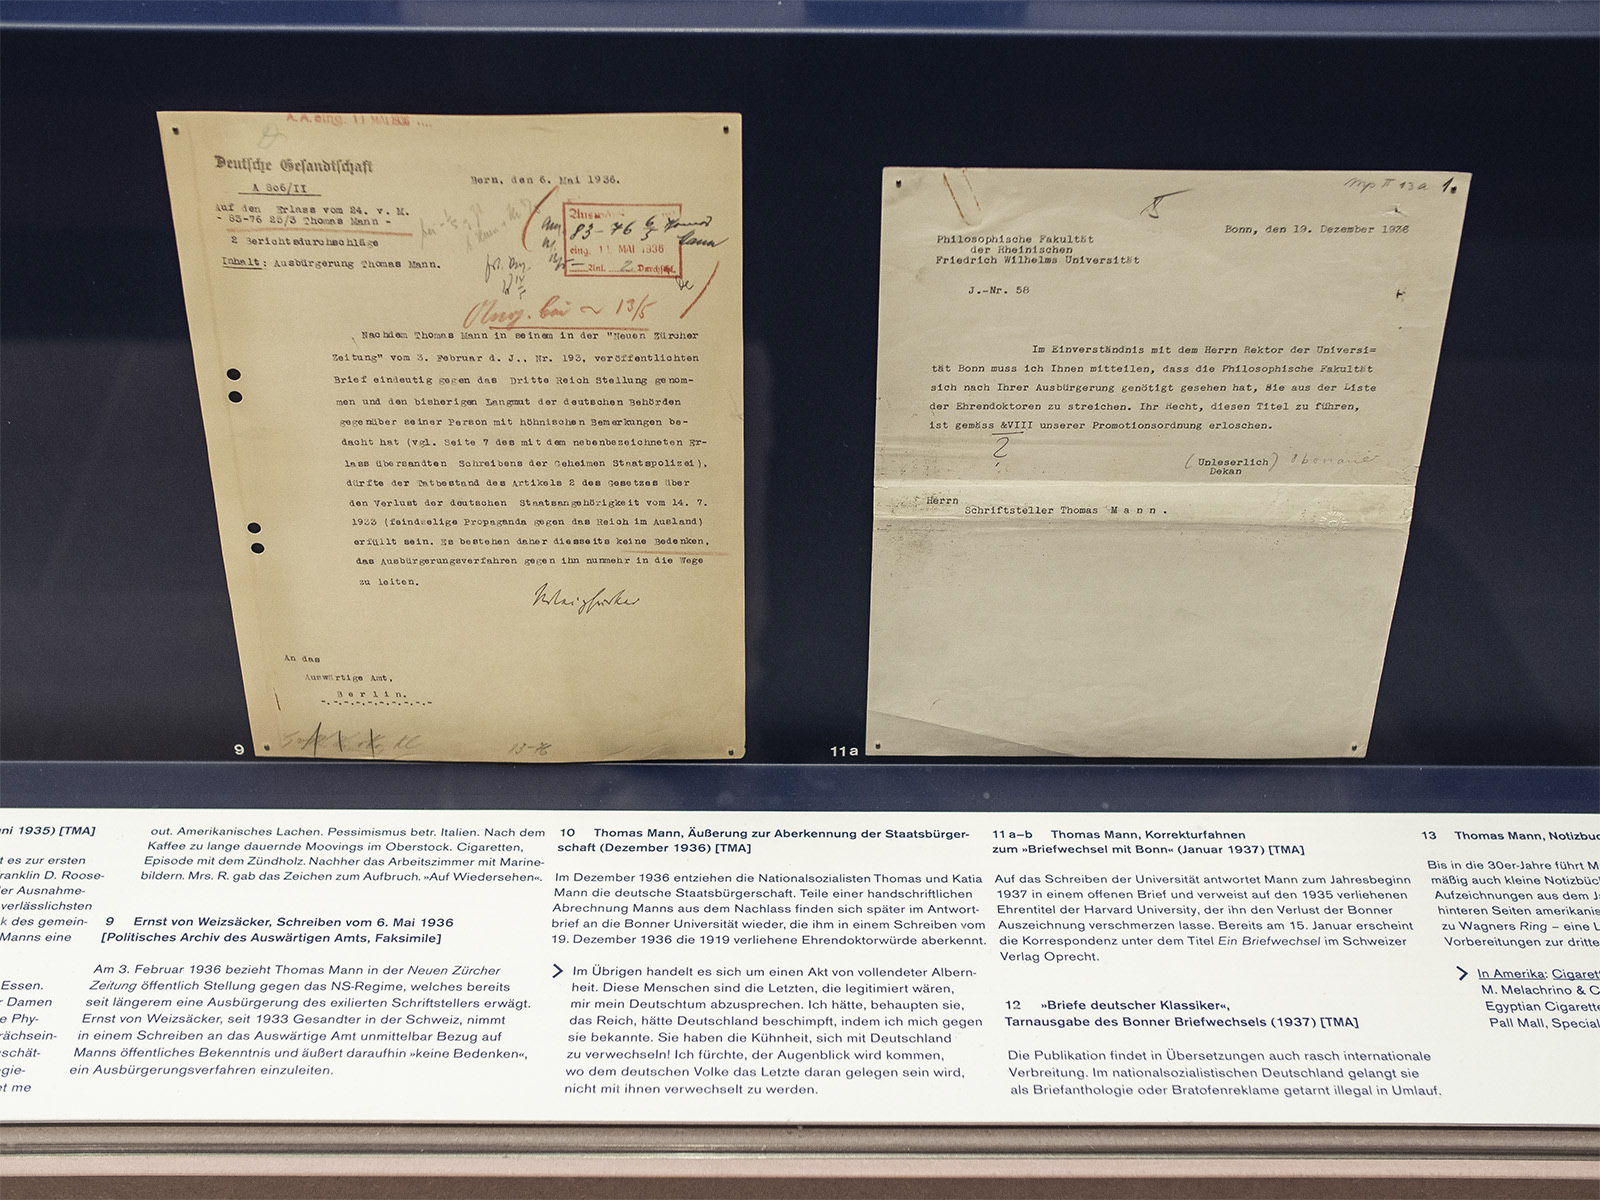 A.A. eing. 11 MAI 1936
Deutsche Gesandtschaft
A 806/II
Bern, den 6. Mai 1936.
Auf den Erlass vom 24. v. M.
- 83-76 25/3 Thomas Mann -
2 Berichtsdurchschläge
Inhalt: Ausbürgerung Thomas Mann.
83-76
eing. 11 MAI 1936
Anl. 2 Durchschl.
13/5
Nachdem Thomas Mann in seinem in der "Neuen Zürcher
Zeitung" vom 3. Februar d. J., Nr. 193, veröffentlichten
Brief eindeutig gegen das Dritte Reich Stellung genom-
men und den bisherigen Langmut der deutschen Behörden
gegenüber seiner Person mit höhnischen Bemerkungen be-
dacht hat (vgl. Seite 7 des mit dem nebenbezeichneten Er-
lass übersandten Schreibens der Geheimen Staatspolizei),
dürfte der Tatbestand des Artikels 2 des Gesetzes über
den Verlust der deutschen Staatsangehörigkeit vom 14. 7.
1933 (feindselige Propaganda gegen das Reich im Ausland)
erfüllt sein. Es bestehen daher diesseits keine Bedenken,
das Ausbürgerungsverfahren gegen ihn nunmehr in die Wege
zu leiten.
An das
Auswärtige Amt,
Berlin.
13-76
9
1.
Bonn, den 19. Dezember 1936
Philosophische Fakultät
der Rheinischen
Friedrich Wilhelms Universität
J.-Nr. 58
Im Einverständnis mit dem Herrn Rektor der Universi=
tät Bonn muss ich Ihnen mitteilen, dass die Philosophische Fakultät
sich nach Ihrer Ausbürgerung genötigt gesehen hat, Sie aus der Liste
der Ehrendoktoren zu streichen. Ihr Recht, diesen Titel zu führen,
ist gemäss &VIII unserer Promotionsordnung erloschen.
?
(Unleserlich)
Dekan
Herrn
Schriftsteller Thomas Mann.
11a
uni 1935) [TMA]
t es zur ersten
ranklin D. Roose-
er Ausnahme-
verlässlichsten
k des gemein-
Manns eine
Essen.
r Damen
e Phy-
rächsein-
schät-
gie-
et me
out. Amerikanisches Lachen. Pessimismus betr. Italien. Nach dem
Kaffee zu lange dauernde Moovings im Oberstock. Cigaretten,
Episode mit dem Zündholz. Nachher das Arbeitszimmer mit Marine-
bildern. Mrs. R. gab das Zeichen zum Aufbruch. »Auf Wiedersehen«.
9 Ernst von Weizsäcker, Schreiben vom 6. Mai 1936
[Politisches Archiv des Auswärtigen Amts, Faksimile]
Am 3. Februar 1936 bezieht Thomas Mann in der Neuen Zürcher
Zeitung öffentlich Stellung gegen das NS-Regime, welches bereits
seit längerem eine Ausbürgerung des exilierten Schriftstellers erwägt.
Ernst von Weizsäcker, seit 1933 Gesandter in der Schweiz, nimmt
in einem Schreiben an das Auswärtige Amt unmittelbar Bezug auf
Manns öffentliches Bekenntnis und äußert daraufhin »keine Bedenken«,
ein Ausbürgerungsverfahren einzuleiten.
10 Thomas Mann, Äußerung zur Aberkennung der Staatsbürger-
schaft (Dezember 1936) [TMA]
Im Dezember 1936 entziehen die Nationalsozialisten Thomas und Katia
Mann die deutsche Staatsbürgerschaft. Teile einer handschriftlichen
Abrechnung Manns aus dem Nachlass finden sich später im Antwort-
brief an die Bonner Universität wieder, die ihm in einem Schreiben vom
19. Dezember 1936 die 1919 verliehene Ehrendoktorwürde aberkennt.
Im Übrigen handelt es sich um einen Akt von vollendeter Albern-
heit. Diese Menschen sind die Letzten, die legitimiert wären,
mir mein Deutschtum abzusprechen. Ich hätte, behaupten sie,
das Reich, hätte Deutschland beschimpft, indem ich mich gegen
sie bekannte. Sie haben die Kühnheit, sich mit Deutschland
zu verwechseln! Ich fürchte, der Augenblick wird kommen,
wo dem deutschen Volke das Letzte daran gelegen sein wird,
nicht mit ihnen verwechselt zu werden.
11 a–b Thomas Mann, Korrekturfahnen
zum »Briefwechsel mit Bonn« (Januar 1937) [TMA]
Auf das Schreiben der Universität antwortet Mann zum Jahresbeginn
1937 in einem offenen Brief und verweist auf den 1935 verliehenen
Ehrentitel der Harvard University, der ihn den Verlust der Bonner
Auszeichnung verschmerzen lasse. Bereits am 15. Januar erscheint
die Korrespondenz unter dem Titel Ein Briefwechsel im Schweizer
Verlag Oprecht.
12 »Briefe deutscher Klassiker«,
Tarnausgabe des Bonner Briefwechsels (1937) [TMA]
Die Publikation findet in Übersetzungen auch rasch internationale
Verbreitung. Im nationalsozialistischen Deutschland gelangt sie
als Briefanthologie oder Bratofenreklame getarnt illegal in Umlauf.
13 Thomas Mann, Notizbuc
Bis in die 30er-Jahre führt M
mäßig auch kleine Notizbüc
Aufzeichnungen aus dem Ja
hinteren Seiten amerikanis
zu Wagners Ring – eine L
Vorbereitungen zur dritte
In Amerika: Cigarett
M. Melachrino & C
Egyptian Cigarette
Pall Mall, Special